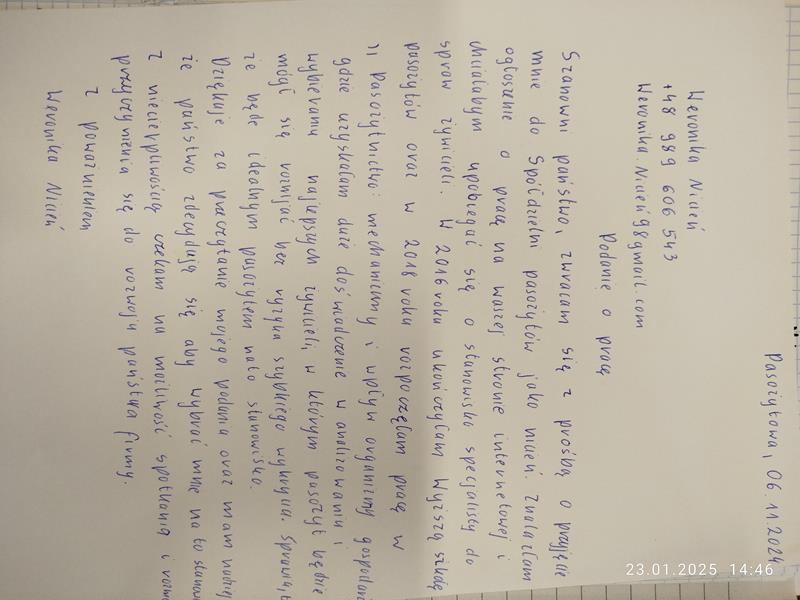 Pasożytowa, 06.11.2024
Weronika Nicień
+48 989 606 543
Weronika.Nicień98gmail.com
Podanie o pracę
Szanowni państwo, zwracam się z prośbą o przyjęcie
mnie do Spółdzielni pasożytów jako nicień. Znalazłam
ogłoszenie o pracę na waszej stronie internetowej i
chciałabym upobiegać się o stanowisko specjalisty do
spraw żywicieli. W 2016 roku ukończyłam Wyższą szkołę
pasożytów oraz w 2018 roku rozpoczęłam pracę w
"Pasożytnictwo: mechanizmy i wpływ organizmy gospodar
gdzie uzyskałam duże doświadczenie w analizowaniu i
wybieraniu najlepszych żywicieli, w którym pasożyt będzie
mógł się rozwijać bez ryzyka szybkiego wykrycia. Sprawią, t
że będę idealnym pasożytem na to stanowisko.
Dziękuję za przeczytanie mojego podania oraz mam nadziej
że państwo zdecydują się aby wybrać mnie na to stanow
Z niecierpliwością czekam na możliwość spotkania i rozmo
przyczynienia się do rozwoju państwa firmy.
Z poważaniem
Weronika Nicień
23.01.2025 14:46